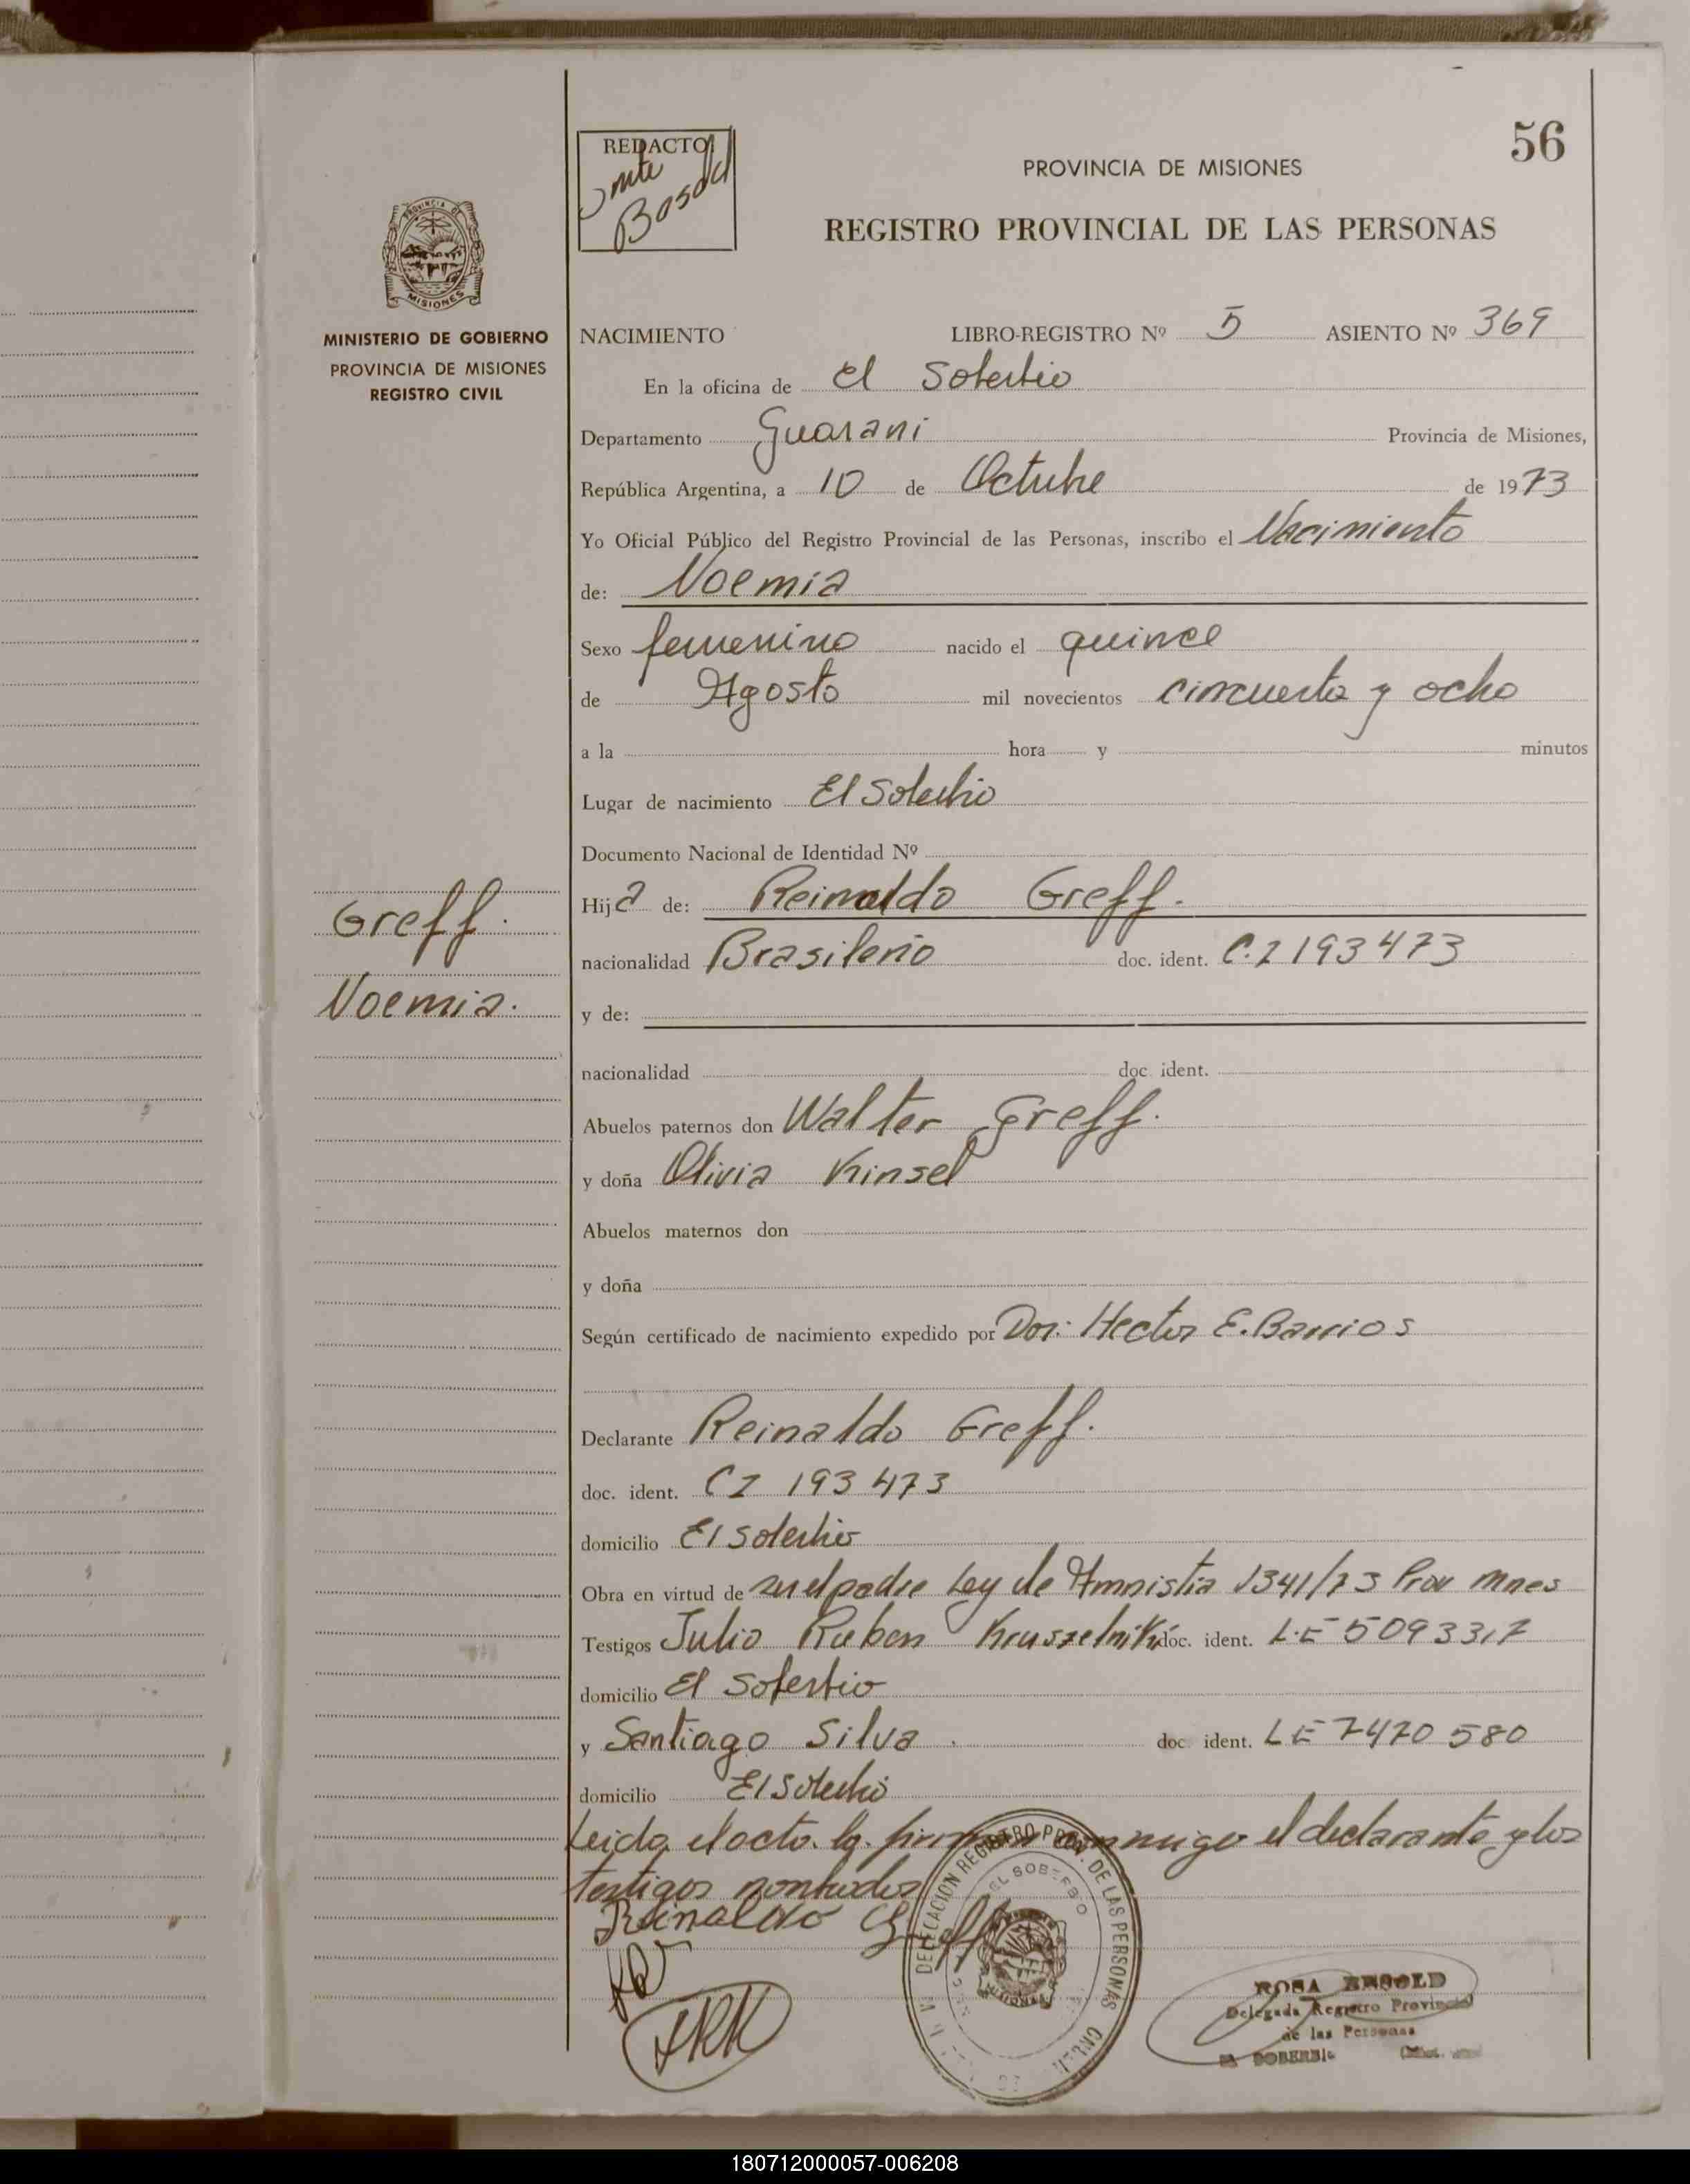 56
REDACTO
PROVINCIA DE MISIONES
REGISTRO PROVINCIAL DE LAS PERSONAS
PROVINCIA DE
MISIONES
MINISTERIO DE GOBIERNO
PROVINCIA DE MISIONES
REGISTRO CIVIL
NACIMIENTO LIBRO-REGISTRO Nº 5 ASIENTO Nº 369
En la oficina de El Soberbio
Departamento Guarani Provincia de Misiones,
República Argentina, a 10 de Octubre de 1973
Yo Oficial Público del Registro Provincial de las Personas, inscribo el Nacimiento
de: Noemia
Sexo femenino nacido el quince
de Agosto mil novecientos cincuenta y ocho
a la hora y minutos
Lugar de nacimiento El Soberbio
Documento Nacional de Identidad Nº
Hija de: Reinaldo Greff.
nacionalidad Brasileño doc. ident. C.I 193473
y de:
nacionalidad doc. ident.
Greff.
Noemia.
Abuelos paternos don Walter Greff.
y doña Olivia Kinsel
Abuelos maternos don
y doña
Según certificado de nacimiento expedido por Dor: Hector E. Barrios
Declarante Reinaldo Greff.
doc. ident. CI 193473
domicilio El Soberbio
Obra en virtud de ser el padre Ley de Amnistia 1341/73 Prov Mnes
Testigos Julio Ruben Kruszelniki doc. ident. L.E 5093317
domicilio El Soberbio
y Santiago Silva. doc. ident. LE 7470580
domicilio El Soberbio
Leida el acta. la. firman conmigo el declarante y los
testigos nombrados
Reinaldo Greff
DELEGACION REGISTRO PROV. DE LAS PERSONAS
EL SOBERBIO
MISIONES
ROSA
Delegada Registro Provincial
de las Personas
EL SOBERBIO
180712000057-006208